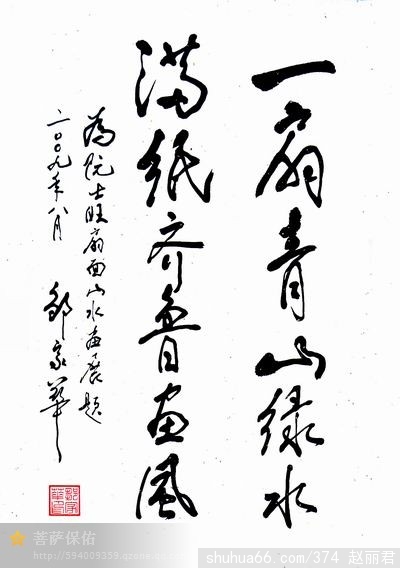 一扇青山绿水
满纸齐鲁画风
为阮士旺扇面山水画展题
二〇〇九年八月
邹家华
菩萨保佑
http://594009359.qzone.qq.com
shuhua66.com/374 赵丽君